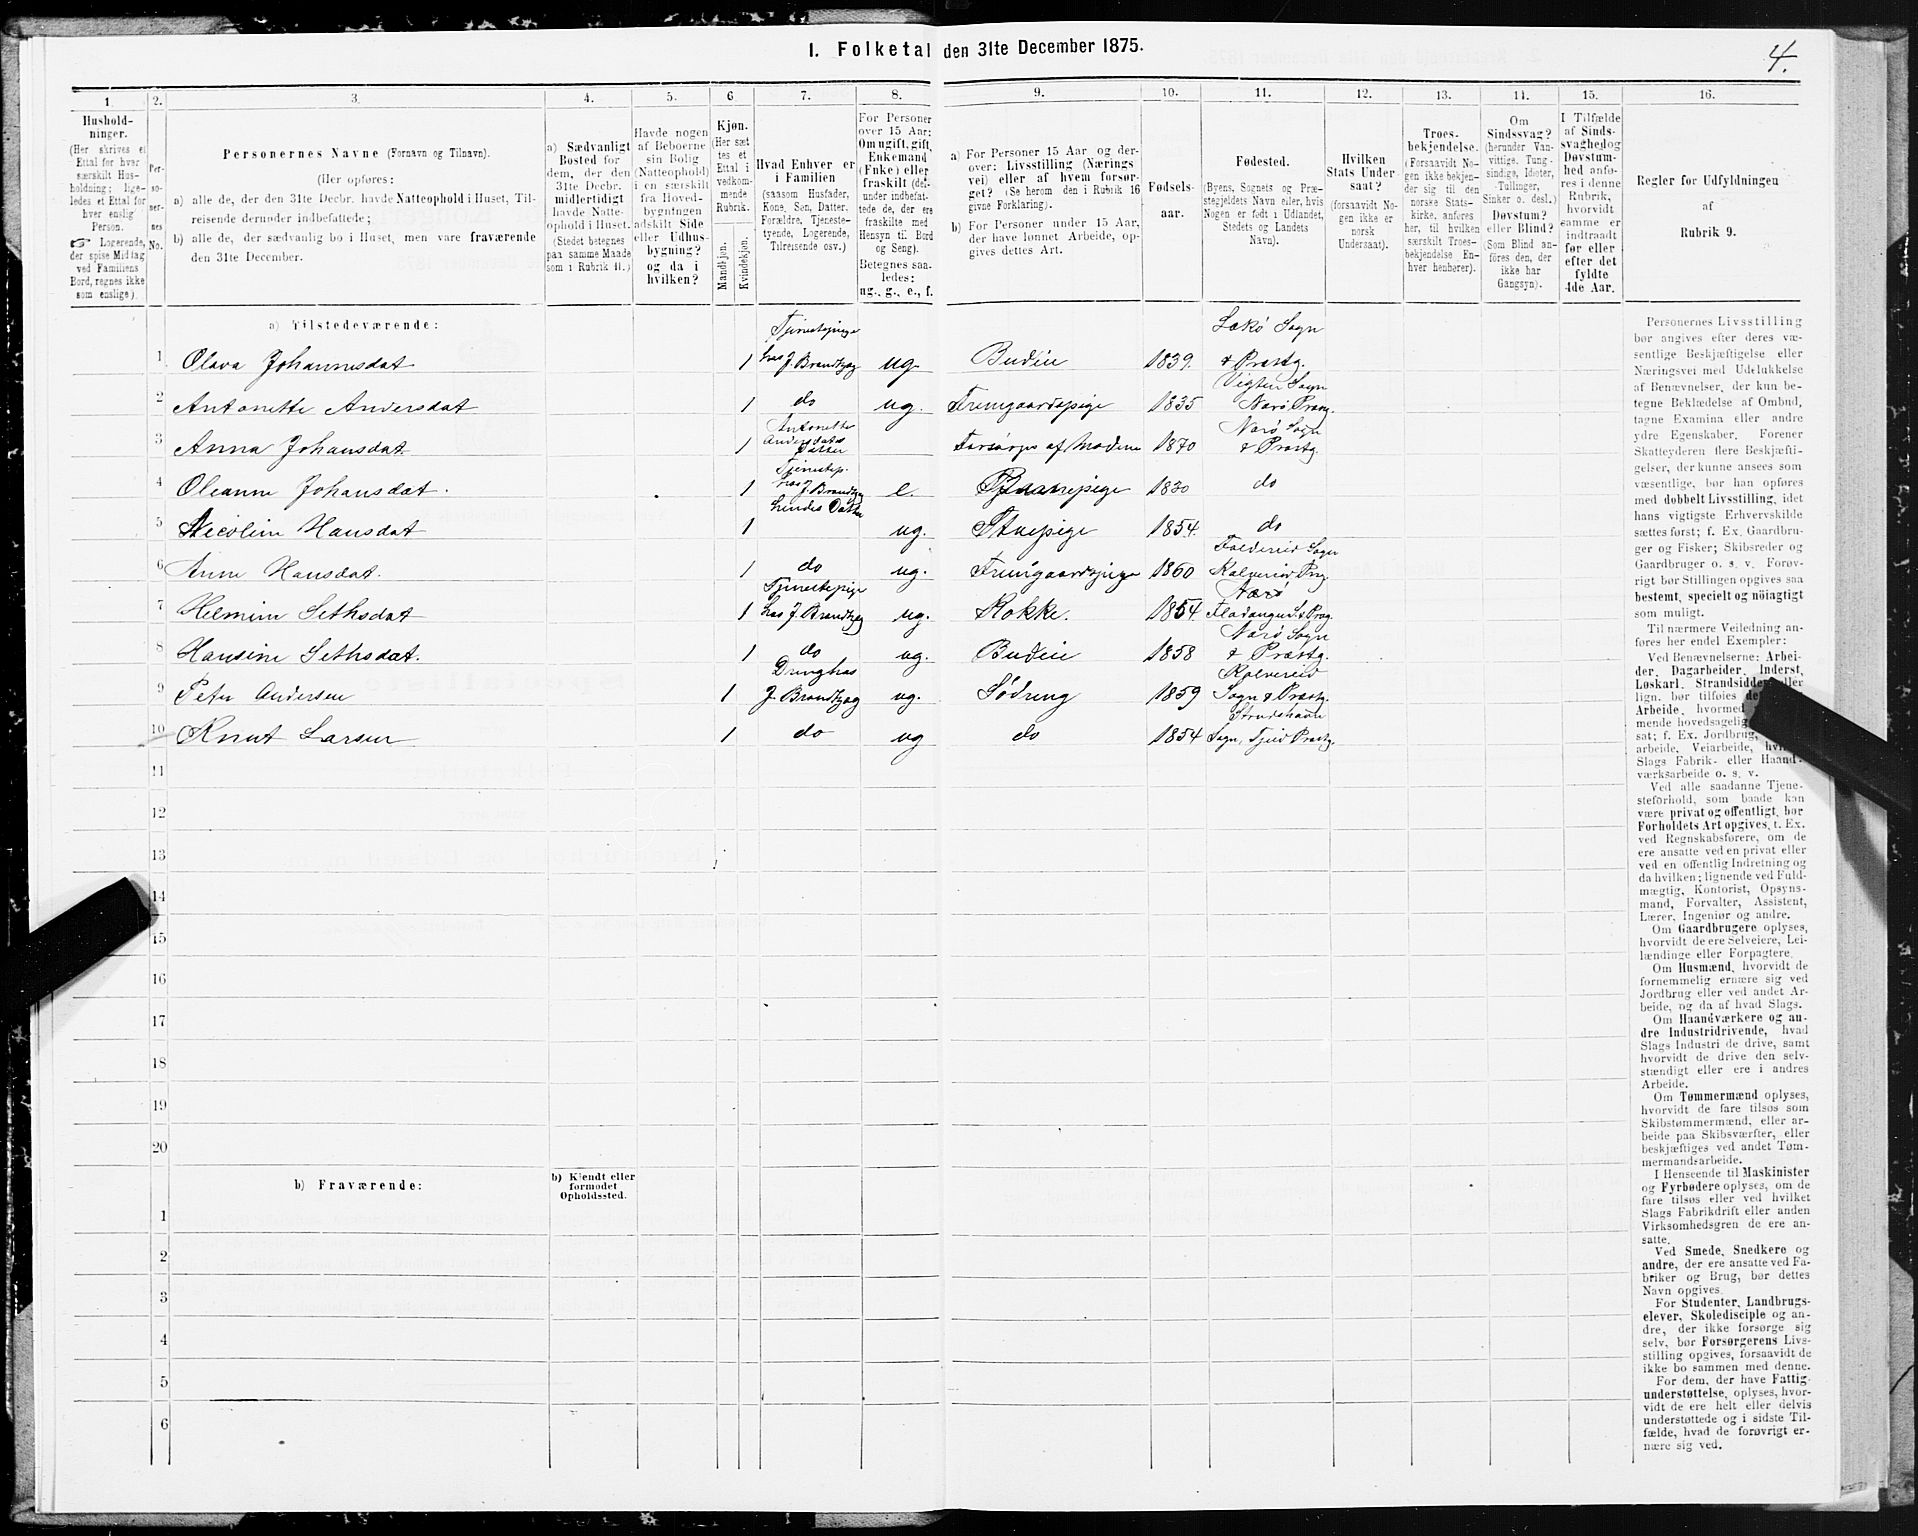 I. Folketal den 31te December 1875.
4.
1. 2. 3. 4. 5. 6 7. 8. 9. 10. 11. 12. 13. 14. 15. 16.
Hushold-
ninger.
(Her skrives et
Ettal for hver
særskilt Hus-
holdning; lige-
ledes et Ettal for
hver enslig
Person.
☞ Logerende,
der spise Middag
ved Familiens
Bord, regnes ikke
som enslige).
Per-
so-
ner-
nes
No.
Personernes Navne (Fornavn og Tilnavn).
(Her opføres:
a) alle de, der den 31te Decbr. havde Natteophold i Huset, Til-
reisende derunder indbefattede;
b) alle de, der sædvanlig bo i Huset, men vare fraværende
den 31te December.
a) Sædvanligt
Bosted for
dem, der den
31te Decbr.
midlertidigt
havde Natte-
ophold i Huset.
(Stedet betegnes
paa samme Maade
som i Rubrik 11.)
Havde nogen
af Beboerne
sin Bolig
(Natteophold)
i en særskilt
fra Hoved-
bygningen
adskilt Side
eller Udhus-
bygning?
og da i
hvilken?
Kjøn.
(Her sæt
tes et
Ettal i
vedkom-
mende
Rubrik.
Mandkjøn.
Kvindekjøn.
Hvad Enhver er
i Familien
(saasom Husfader,
Kone, Søn, Datter,
Forældre, Tjeneste-
tyende, Logerende,
Tilreisende osv.)
For Personer
over 15 Aar:
Om ugift, gift,
Enkemand
(Enke) eller
fraskilt (der-
under indbefat-
tede de, der ere
fraskilte med
Hensyn til Bord
og Seng).
Betegnes saa-
ledes:
ug., g., e., f.
a) For Personer 15 Aar og der-
over: Livsstilling (Nærings
vei) eller af hvem forsør-
get? (Se herom den i Rubrik 16
givne Forklaring).
b) For Personer under 15 Aar,
der have lønnet Arbeide, op-
gives dettes Art.
Fødsels-
aar.
Fødested.
(Byens, Sognets og Præ-
stegjeldets Navn eller, hvis
Nogen er født i Udlandet,
Stedets og Landets
Navn).
Hvilken
Stats Under
saat?
(forsaavidt No-
gen ikke er
norsk
Undersaat).
Troes-
bekjendelse.
(Forsaavidt No-
gen ikke bekjen-
der sig til den
norske Stats-
kirke, anføres
her, til hvilken
særskilt Troes-
bekjendelse En-
hver henhører).
Om
Sindssvag?
(herunder Van-
vittige, Tung-
sindige, Idioter,
Tullinger,
Sinker o. desl.)
Døvstum?
eller Blind?
(Som Blind an-
føres den, der
ikke har
Gangsyn).
I Tilfælde
af Sinds-
svaghed og
Døvstum-
hed anfø-
res i denne
Rubrik,
hvorvidt
samme er
indtraadt
før eller
efter det
fyldte
4de Aar.
Regler for Udfyldningen
af
Rubrik 9.
a) Tilstedeværende:
1 Olava Johannesdat 1 Tjenestepige hos J. Brandtzæg ug. Budeie 1839. Sogn & Præstg.
2 Antonette Andersdat 1 do ug. 1835 Vigten Sogn Nærø Præstg.
3 Anna Johansdat 1 Antonette Andersdats Datter Forsørges af Moderen 1870 Nærø Sogn & Præstg.
4 Oleanne Johansdat. 1 Tjenestep. hos J. Brandtzæg e. 1830 do
5 Nicoline Hansdat 1 hendes Datter ug. Stuepige 1854. do
6 Anne Hansdat. 1 do ug. 1860 Foldereid Sogn Kolvereid Præg.
7 Helmine Sethsdat 1 Tjenestepige hos J. Brandtzæg ug. Kokke. 1854. Nærø
8 Hansine Sethsdat. 1 do ug. Budeie 1858 Nærø Sogn & Præstg.
9 Peter Andersen 1 Dreng hos J. Brandtzæg ug. 1859 Kolvereid Sogn & Præstg.
10 Knut Larsen 1 do ug do 1854 Sogn, Præstg.
11
12
13
14
15
16
17
18
19
20
b) Fraværende: b) Kjendt eller
formodet
Opholdssted.
1
2
3
4
5
6
Personernes Livsstilling
bør angives efter deres væ-
sentlige Beskjæftigelse eller
Næringsvei med Udelukkelse
af Benævnelser, der kun be-
tegne Beklædelse af Ombud,
tagne Examina eller andre
ydre Egenskaber. Forener
Skatteyderen flere Beskjæfti-
gelser, der kunne ansees som
væsentlige, bør han opføres
med dobbelt Livsstilling, idet
hans vigtigste Erhvervskilde
sættes først; f. Ex. Gaardbru-
ger og Fisker; Skibsreder og
Gaardbruger o. s. v. Forøv-
rigt bør Stillingen opgives saa
bestemt, specielt og nöiagtigt
som muligt.
Til nærmere Veiledning an-
føres her endel Exempler:
Ved Benævnelserne: Arbei-
der, Dagarbeider, Inderst,
Løskarl, Strandsidder eller
lign. bør tilføies
Arbeide, hvormed
mende hovedsagelig
sat; f. Ex. Jordbrug,
arbeide, Veiarbeide,
Slags Fabrik- eller Haand-
værksarbeide o. s. v.
Ved alle saadanne Tjene-
steforhold, som baade kan
være privat og offentligt, bør
Forholdets Art opgives, t. Ex.
ved Regnskabsførere, om de
ere ansatte ved en privat eller
ved en offentlig Indretning og
da hvilken; lignende ved Fuld-
mægtig, Kontorist, Opsyns-
mand, Forvalter, Assistent,
Lærer, Ingeniør og andre.
Om Gaardbrugere oplyses,
hvorvidt de ere Selveiere, Lei-
lændinge eller Forpagtere.
Om Husmænd, hvorvidt de
fornemmelig ernære sig ved
Jordbrug eller ved andet Ar-
beide, og da af hvad Slags.
Om Haandværkere og an-
dre Industridrivende, hvad
Slags Industri de drive, samt
hvorvidt de drive den selv-
stændigt eller ere i andres
Arbeide.
Om Tømmermænd oplyses,
hvorvidt de fare tilsøs som
Skibstømmermænd, eller ar-
beide paa Skibsværfter, eller
beskjæftiges ved andet Tøm-
mermandsarbeide.
I Henseende til Maskinister
og Fyrbødere oplyses, om de
fare tilsøs eller ved hvilket
Slags Fabrikdrift eller anden
Virksomhedsgren de ere an-
satte.
Ved Smede, Snedkere og
andre, der ere ansatte ved Fa-
briker og Brug, bør dettes
Navn opgives.
For Studenter, Landbrugs-
elever, Skoledisciple og an-
dre, der ikke forsørge sig
selv, bør Forsørgerens Livs-
stilling opgives, forsaavidt de
ikke bo sammen med denne.
For dem, der have Fattig-
understøttelse, oplyses, hvor-
vidt de ere helt eller delvis
understøttede og i sidste Til-
fælde, hvad de forøvrigt er-
nære sig ved.